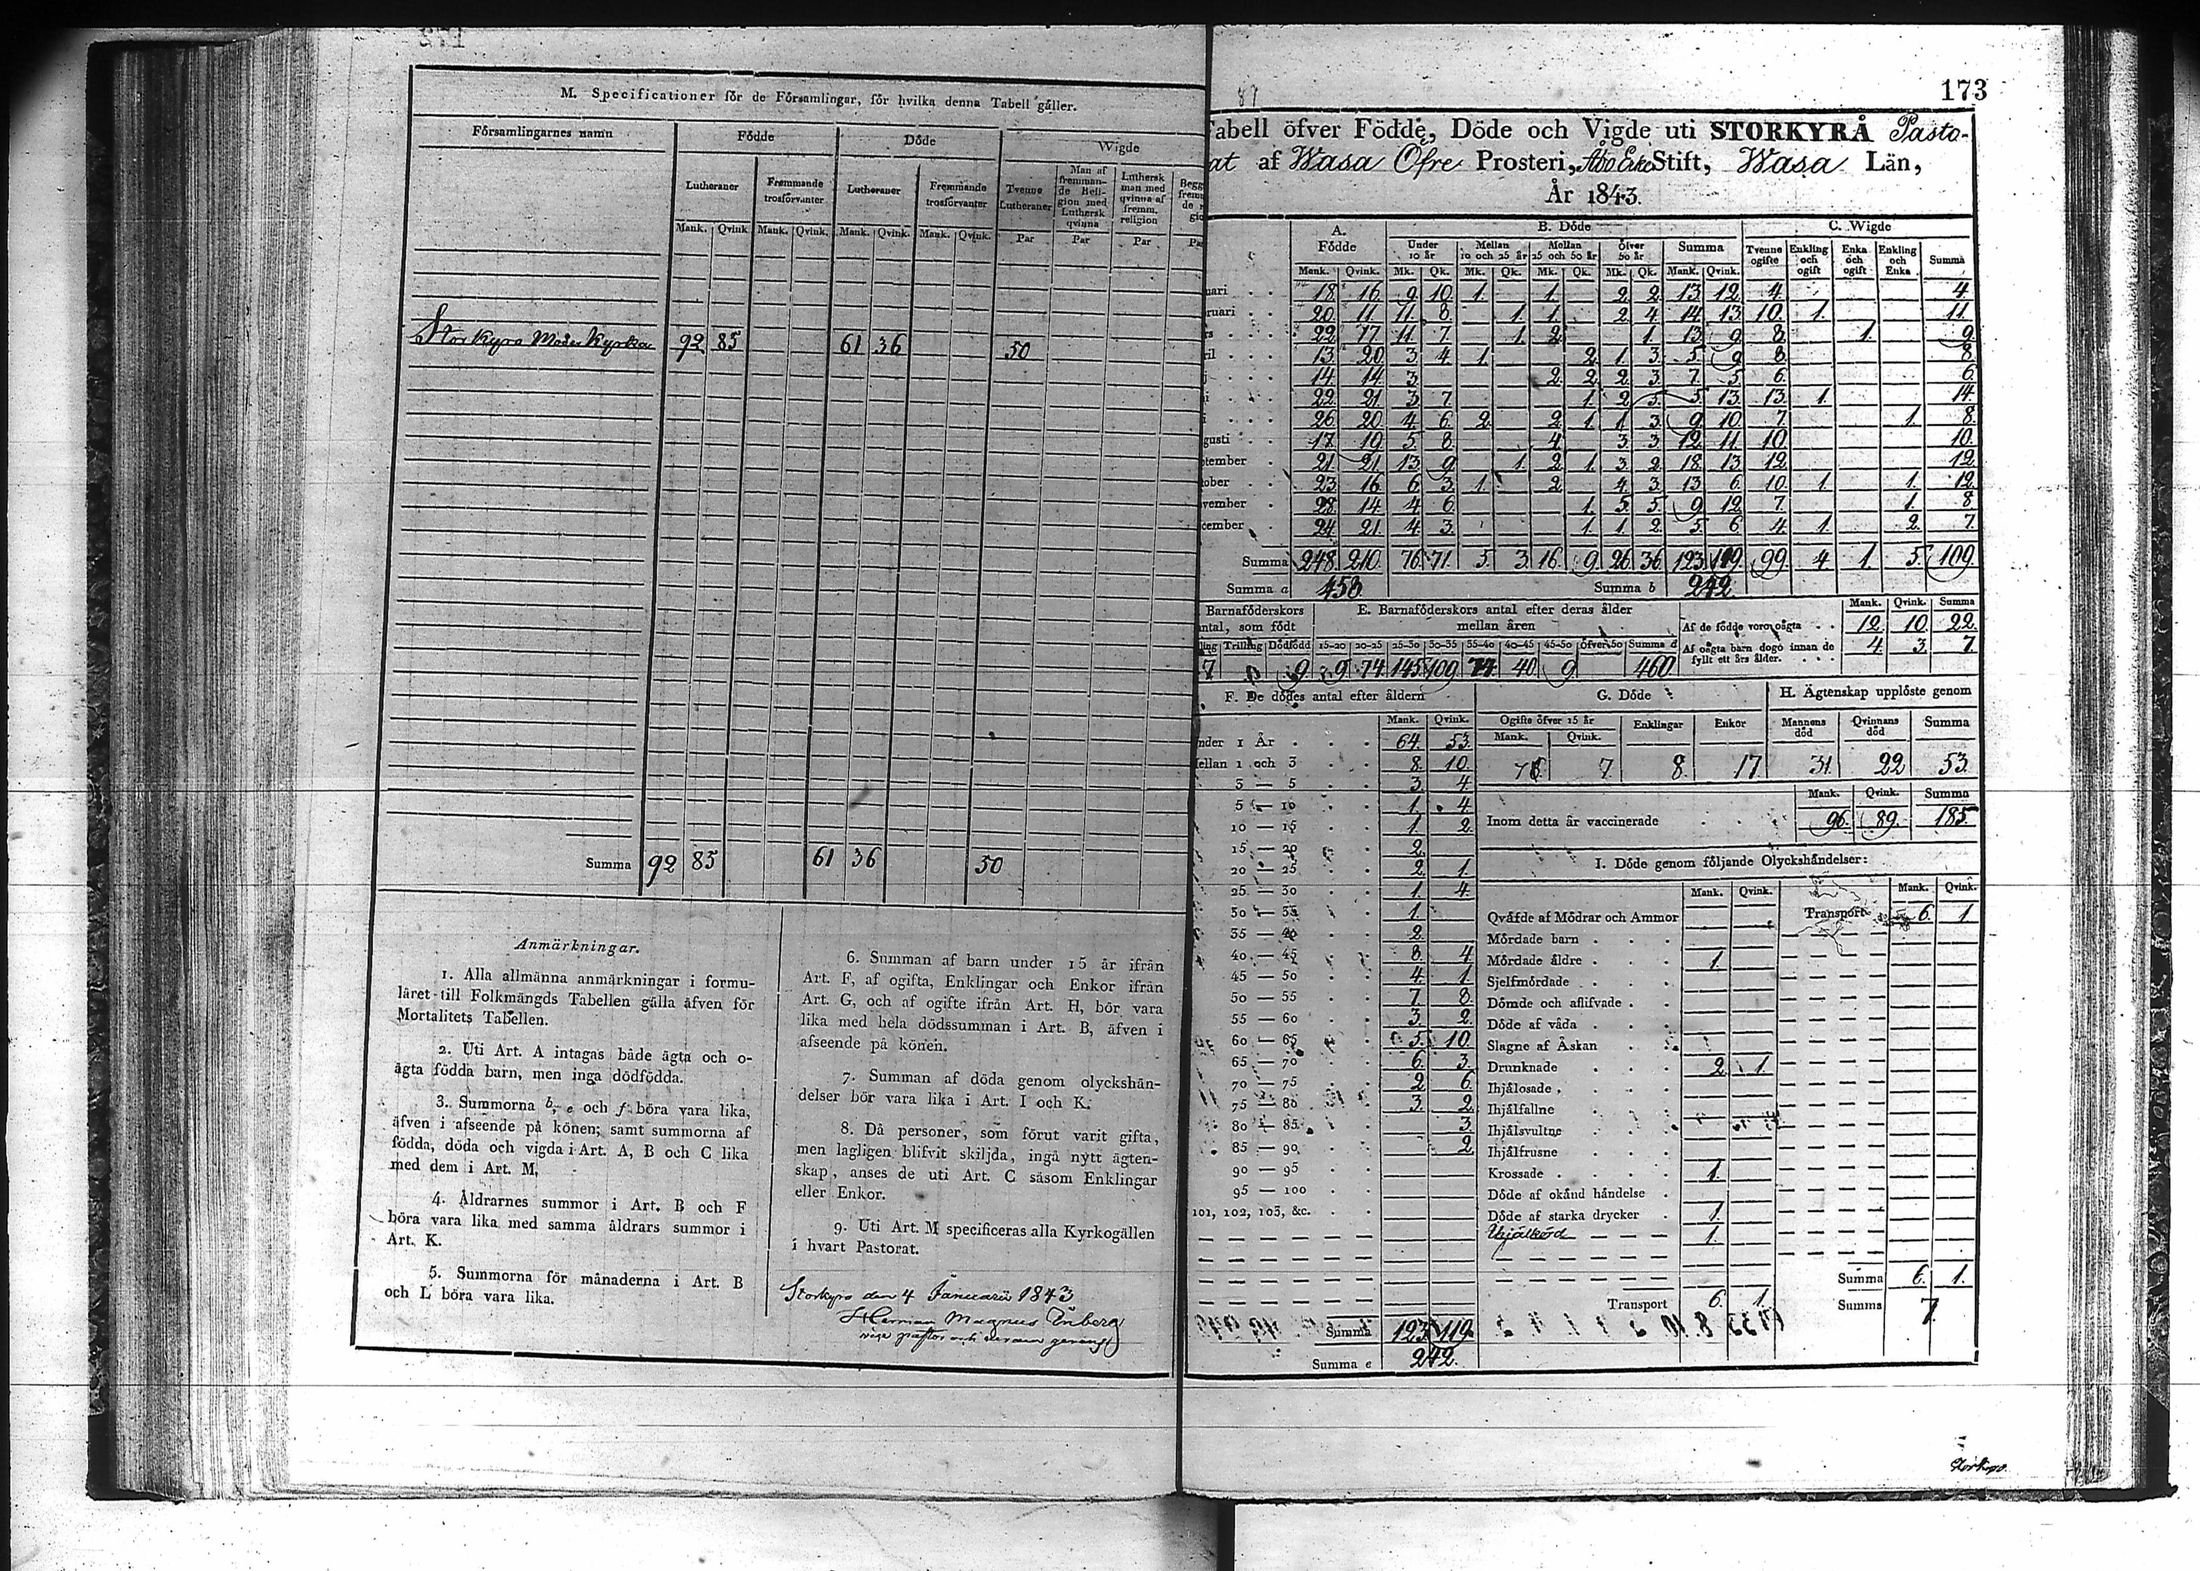 M. Specificationer för de Församlingar, för hvilka denna Tabell gäller.
Församlingarnes namn Födde Döde Wigde
Lutheraner Fremmande trosförvanter Lutheraner Fremmande trosförvanter Tvenne Lutheraner Man af fremman-de Reli-gion med Luthersk qvinna Luthersk man med qvinna af fremm. religion
Mank. Qvink Mank. Qvink. Mank. Qvink. Mank. Qvink. Par Par Par Par
Storkyro Moder Kyrka 92 85 61 36 50
Summa 92 85 61 36 50
Anmärkningar.
1. Alla allmänna anmärkningar i formu-
läret till Folkmängds Tabellen gälla äfven för
Mortalitets Tabellen.
2. Uti Art. A intagas både ägta och o-
ägta födda barn, men inga dödfödda.
3. Summorna b, e och f böra vara lika,
äfven i afseende på könen; samt summorna af
födda, döda och vigda i Art. A, B och C lika
med dem i Art. M,
4. Åldrarnes summor i Art. B och F
böra vara lika med samma åldrars summor i
Art. K.
5. Summorna för månaderna i Art. B
och L böra vara lika.
6. Summan af barn under 15 år ifrån
Art. F, af ogifta, Enklingar och Enkor ifrån
Art. G, och af ogifte ifrån Art. H, bör vara
lika med hela dödssumman i Art. B, äfven i
afseende på könen.
7. Summan af döda genom olyckshän-
delser bör vara lika i Art. I och K.
8. Då personer, som förut varit gifta,
men lagligen blifvit skiljda, ingå nytt ägten-
skap, anses de uti Art. C såsom Enklingar
eller Enkor.
9. Uti Art. M specificeras alla Kyrkogällen
i hvart Pastorat.
Storkyro den 4 Januarii 1843
Herman Magnus Enberg
173
Tabell öfver Födde, Döde och Vigde uti STORKYRÅ Pasto-
rat af Wasa Öfre Prosteri, Åbo Erke Stift, Wasa Län,
År 1843.
A. Födde B. Döde C. Wigde
Under 10 år Mellan 10 och 25 år Mellan 25 och 50 år Öfver 50 år Summa Tvenne ogifte Enkling och ogift Enka och ogift Enkling och Enka Summa
Mank. Qvink. Mk. Qk. Mk. Qk. Mk. Qk. Mk. Qk. Mank. Qvink.
uari 18 16 9 10 1 1 2 2 13 12 4 4
ruari 20 11 11 8 1 1 2 4 14 13 10 1 11
rs 22 17 11 7 1 2 1 13 9 8 1 9
ril 13 20 3 4 1 2 1 3 5 9 8 8
14 14 3 2 2 2 3 7 5 6 6
22 21 3 7 1 2 5 5 13 13 1 14
26 20 4 6 2 2 1 1 3 9 10 7 1 8
gusti 17 19 5 8 4 3 3 12 11 10 10
tember 21 21 13 9 1 2 1 3 2 18 13 12 12
ober 23 16 6 3 1 2 4 3 13 6 10 1 1 12
vember 28 14 4 6 1 5 5 9 12 7 1 8
cember 24 21 4 3 1 1 2 5 6 4 1 2 7
Summa 248 210 76 71 5 3 16 9 26 36 123 119 99 4 1 5 109
Summa a 458 Summa b 242
Barnaföderskors antal, som födt
E. Barnaföderskors antal efter deras ålder mellan åren
Trilling Dödfödd 15-20 20-25 25-30 30-35 35-40 40-45 45-50 Öfver 50 Summa d
7 9 9 74 145 109 74 40 9 460
Mank. Qvink. Summa
Af de födde voro oägta 12 10 22
Af oägta barn dogo innan de fyllt ett års ålder. 4 3 7
F. De dödes antal efter åldern
Mank. Qvink.
nder 1 År 64 53
ellan 1 och 3 8 10
3 — 5 3 4
5 — 10 1 4
10 — 15 1 2
15 — 20 2
20 — 25 2 1
25 — 30 1 4
30 — 35 1
35 — 40 2
40 — 45 8 4
45 — 50 4 1
50 — 55 7 8
55 — 60 3 2
60 — 65 5 10
65 — 70 6 3
70 — 75 2 6
75 — 80 3 2
80 — 85 3
85 — 90 2
90 — 95
95 — 100
101, 102, 103, &c.
Summa 123 119
Summa e 242
G. Döde
Ogifte öfver 15 år Enklingar Enkor
Mank. Qvink.
7 8 17
H. Ägtenskap upplöste genom
Mannens död Qvinnans död Summa
31 22 53
Mank. Qvink. Summa
Inom detta år vaccinerade 96 89 185
I. Döde genom följande Olyckshändelser:
Mank. Qvink. Mank. Qvink.
Qväfde af Mödrar och Ammor Transport 6 1
Mördade barn
Mördade äldre 1
Sjelfmördade
Dömde och aflifvade
Döde af våda
Slagne af Åskan
Drunknade 2 1
Ihjälosade
Ihjälfallne
Ihjälsvultne
Ihjälfrusne
Krossade 1
Döde af okänd händelse
Döde af starka drycker 1
Ihjälkörd 1
Transport 6 1
Summa 6 1
Summa 7
Storkyro